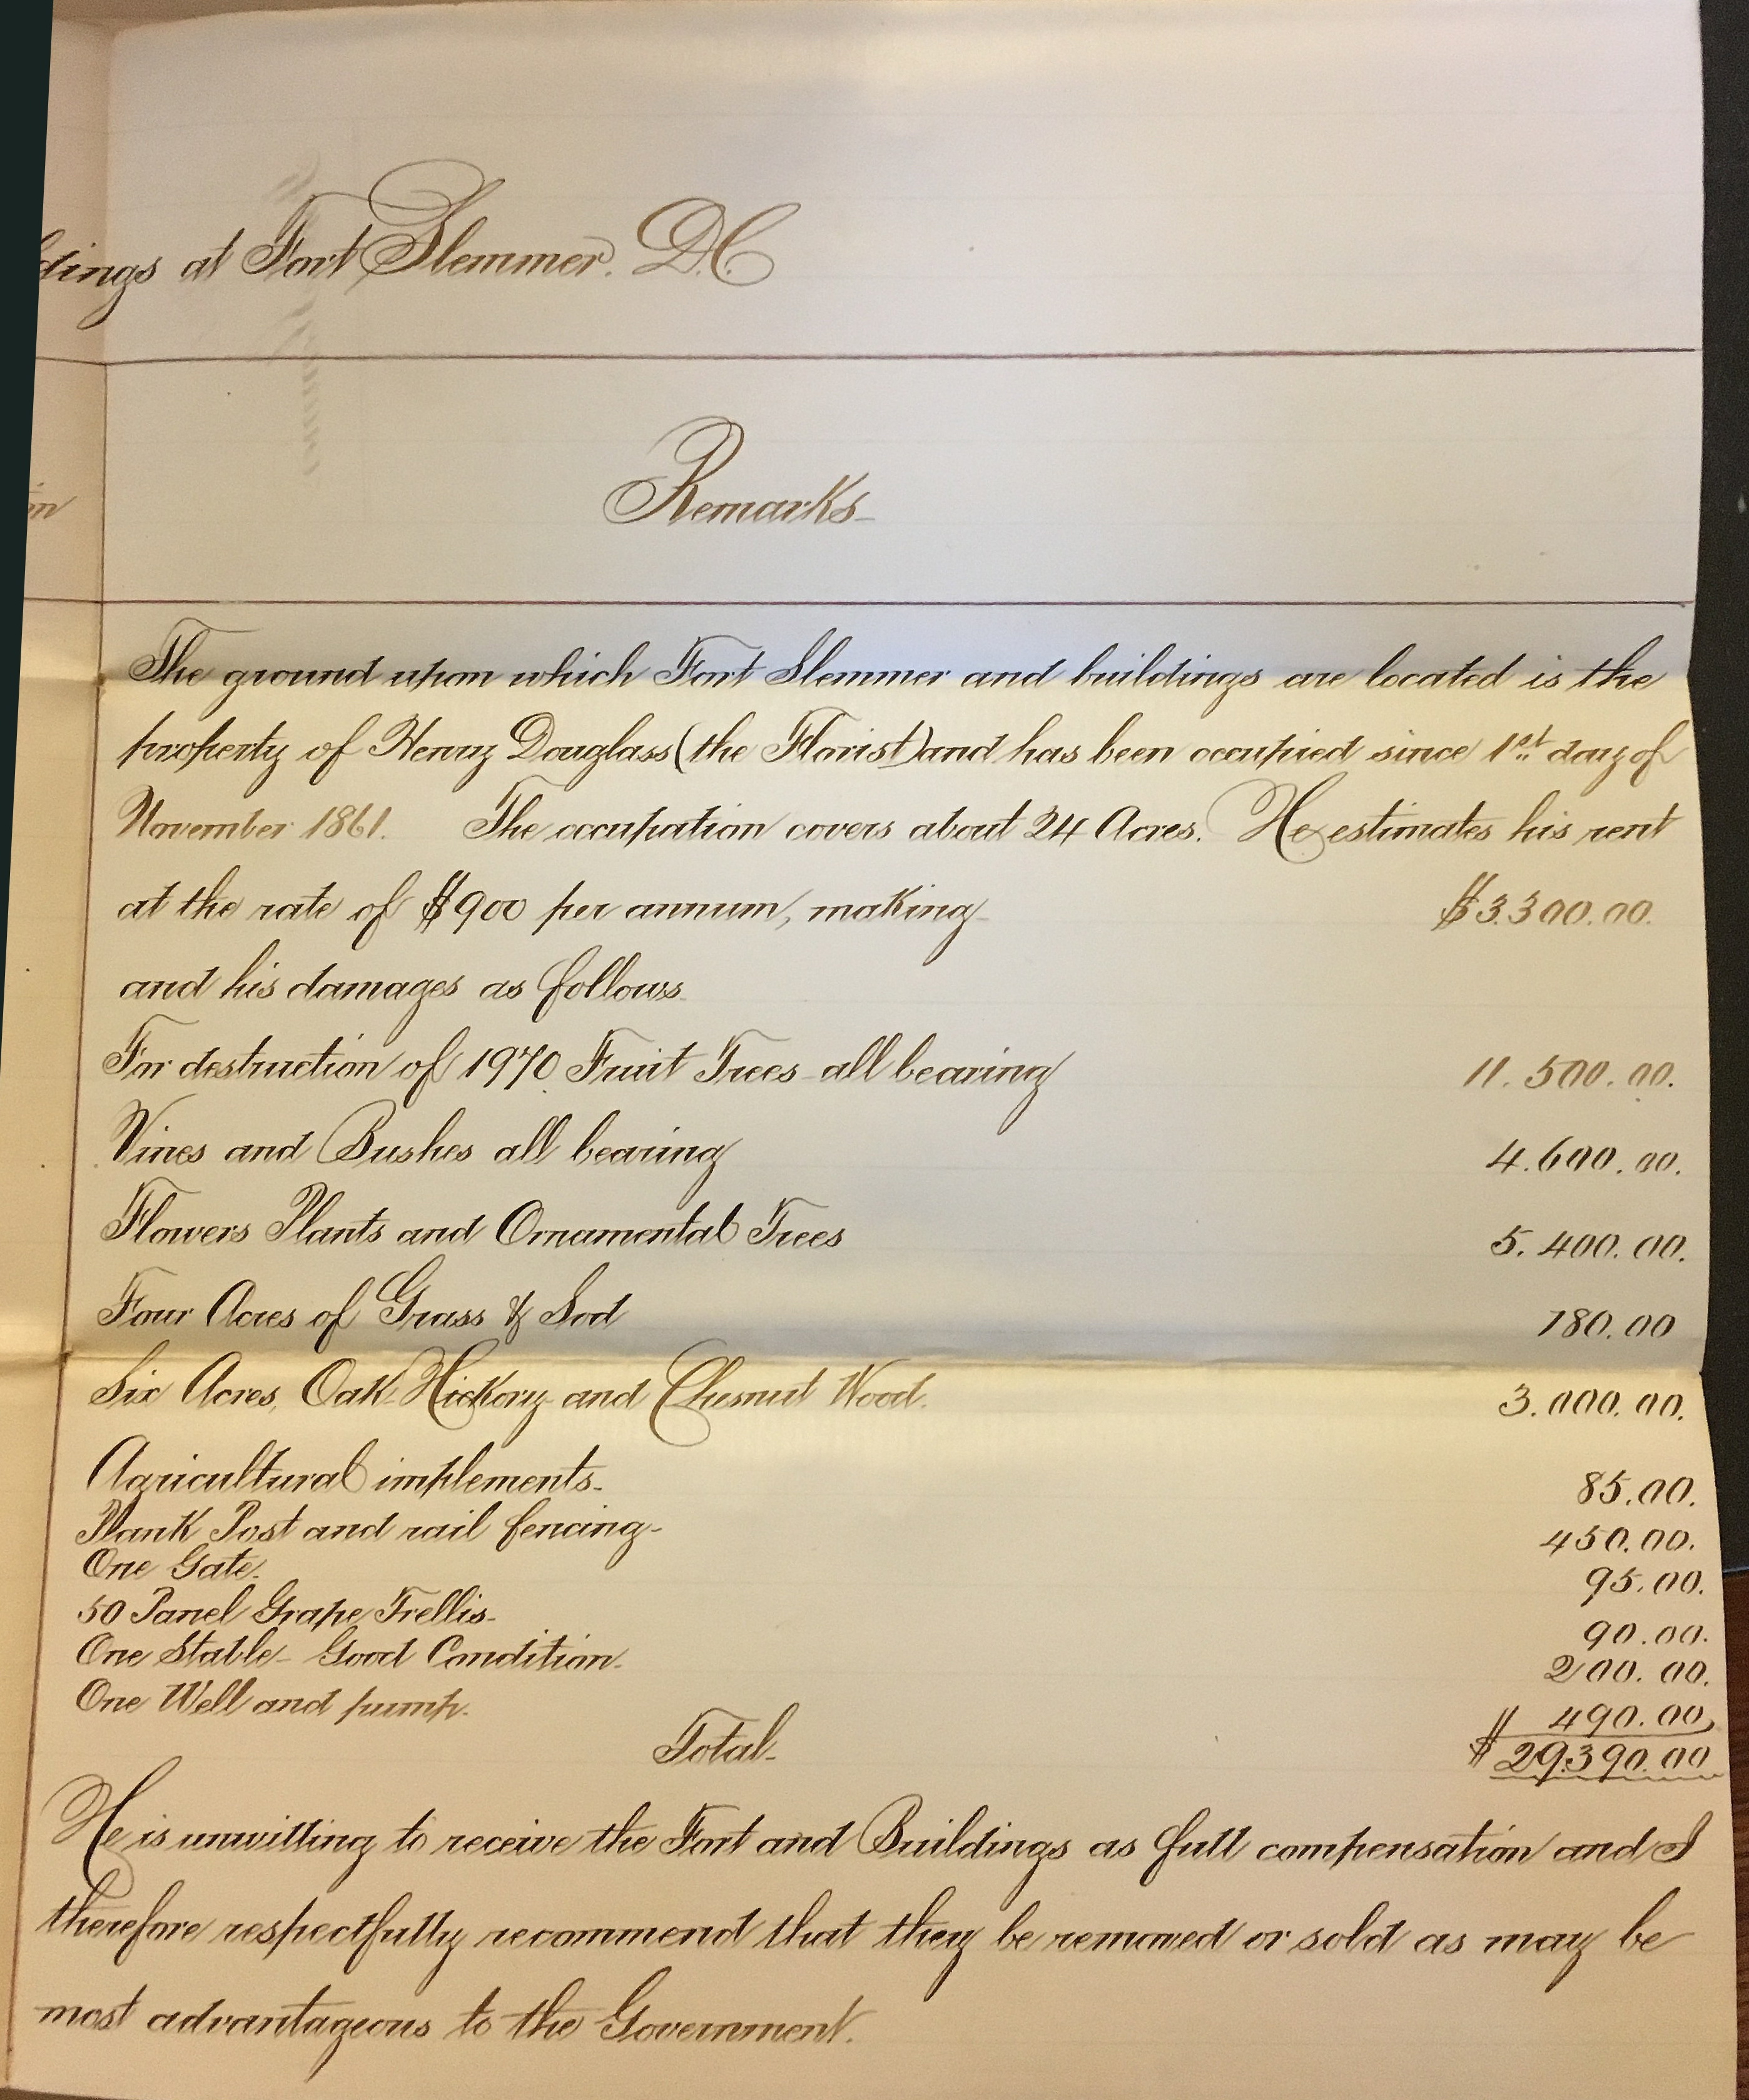 dings at Fort Slemmer. D.C.
Remarks-
The ground upon which Fort Slemmer and buildings are located is the
property of Henry Douglass (the Florist) and has been occupied since 1st day of
November 1861. The occupation covers about 24 Acres. He estimates his rent
at the rate of $900 per annum, making $3.300.00.
and his damages as follows
For destruction of 1970 Fruit Trees all bearing 11.500.00.
Vines and Bushes all bearing 4.600.00.
Flowers Plants and Ornamental Trees 5.400.00.
Four Acres of Grass & Sod 780.00
Six Acres, Oak Hickory and Chesnut Wood. 3.000.00.
Agricultural implements- 85.00.
Plank Post and rail fencing- 450.00.
One Gate. 95.00.
50 Panel Grape Trellis- 90.00.
One Stable- Good Condition- 200.00.
One Well and pump. $ 490.00
Total- $29.390.00
He is unwilling to receive the Fort and Buildings as full compensation and I
therefore respectfully recommend that they be removed or sold as may be
most advantageous to the Government.